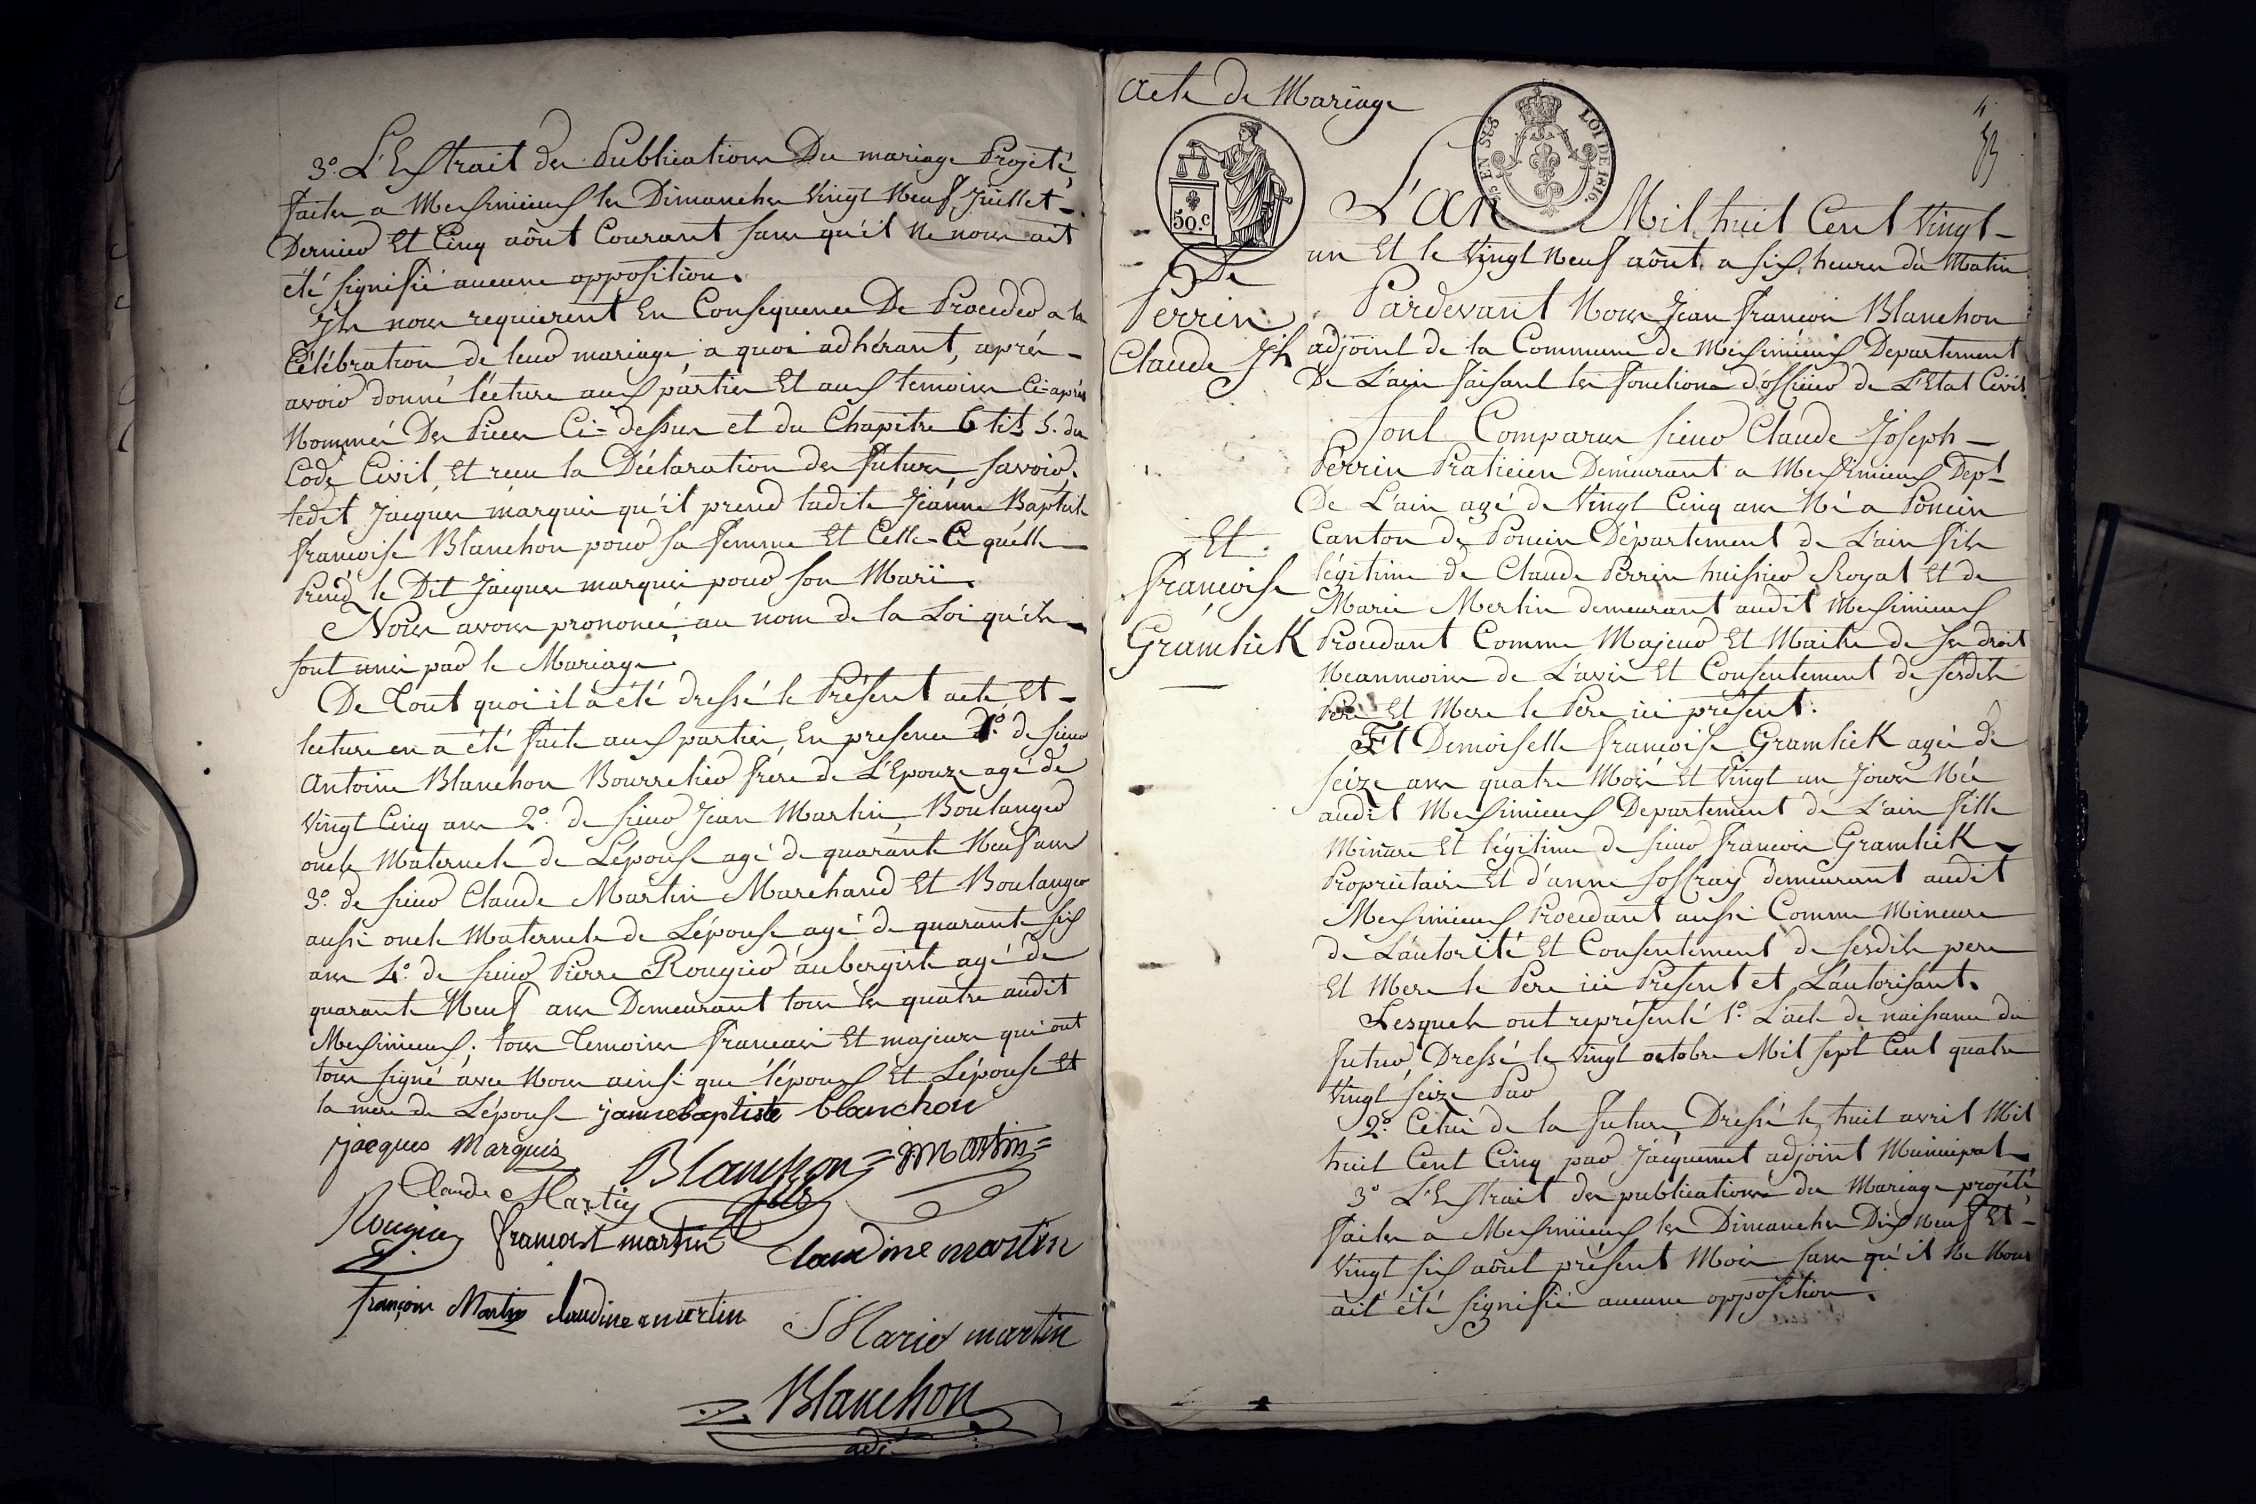 3º. L'Extrait des Publications Du mariage Projeté,
faites a Meximieux les Dimanches Vingt Neuf Juillet -
Dernier Et Cinq aôut Courant sans qu'il ne nous ait
été signifié aucune opposition.
Ils nous requierent En Consequence De Proceder a la
Célébration de leur mariage a quoi adhérant, après -
avoir donné lécture aux parties Et aux temoins Ci-après
Nommés Des Pieces Ci-dessus et du Chapitre 6 tit 5. du
Code Civil, Et reçu la Déclaration des futurs, savoir,
ledit Jacques marquis qu'il prend ladite Jeanne Baptiste
françoise Blanchon pour sa femme Et Celle-Ci quélle
Prend le Dit Jacques marquis pour son Mari.
Nous avons prononcé au nom de la Loi qu'ils -
sont unis par le Mariage
De Tout quoi il a été dressé le Présent acte, Et -
lecture en a été faite aux parties, En presence 1º. de sieur
Antoine Blanchon Bourrelier frère de L'Epouze agé de
vingt Cinq ans 2º. de sieur Jean Martin, Boulanger
oncle Maternele de Lépouse agé de quarante Neuf ans
3º. de sieur Claude Martin Marchand Et Boulanger
aussi oncle Maternele de Lépouse agé de quarante six
ans 4º. de sieur Pierre Rougier aubergiste agé de
quarante Neuf ans Demeurant tous les quatre audit
Meximieux; tous Temoins francais Et majeurs qui ont
tous signé avec Nous ainsi que l'époux Et Lépouse Et
la mere de Lépouse janne baptiste blanchon
jacques Marquis Blanchon fils = j Martin =
Claude Martin
Rougier françoist martin Claudine martin
françois Martin claudine martin
Marie martin
Blanchon
adj.
Acte de Mariage
50.C
EN SUS
LOI DE 1816.
53
De
Perrin
Claude Jh
Et
françoise
Gramlick
L'An Mil huit Cent Vingt -
un Et le Vingt Neuf aôut, a six heures du Matin
Pardevant Nous Jean françois Blanchon
adjoint de la Commune de Meximieux Departement
De L'ain faisant les fonctions d'officier de L'Etat Civil
sont Comparus sieur Claude Joseph -
Perrin Praticien Demeurant a Meximieux Dept
De L'ain agé de Vingt Cinq ans Né a Poncin
Canton de Poncin Département de L'ain fils
légitime de Claude Perrin huissier Royal Et de
Marie Merlin demeurant audit Meximieux
Procedant Comme Majeur Et Maitre de ses droit
Neanmoins de L'avis Et Consentement de sesdits
Pere Et Mere le Père ici présent.
Et Demoiselle françoise Gramlick agée de
séize ans quatre Mois Et Vingt un Jours Née
audit Meximieux Departement de L'ain fille
Mineure Et légitime de sieur françois Gramlick -
Propriétaire Et d'anne soffray demeurant audit
Meximieux Procedant aussi Comme Mineure
de Lautorité Et Consentement de sesdits pere
Et Mere le Pere ici Présent et Lautorisant.
Lesquels ont représenté 1º. L'acte de naissance du
futur, Dressé le vingt octobre Mil sept Cent quatre
Vingt seize Par
2º. Celui de la future Dressé le huit avril Mil
huit Cent Cinq par Jacquemet adjoint Municipal
3º L'Extrait des publications du Mariage projété
faites a Meximieux les Dimanches Dix Neuf Et -
Vingt six aôut présent Mois sans qu'il Ne Nous
ait été signifié aucune opposition.